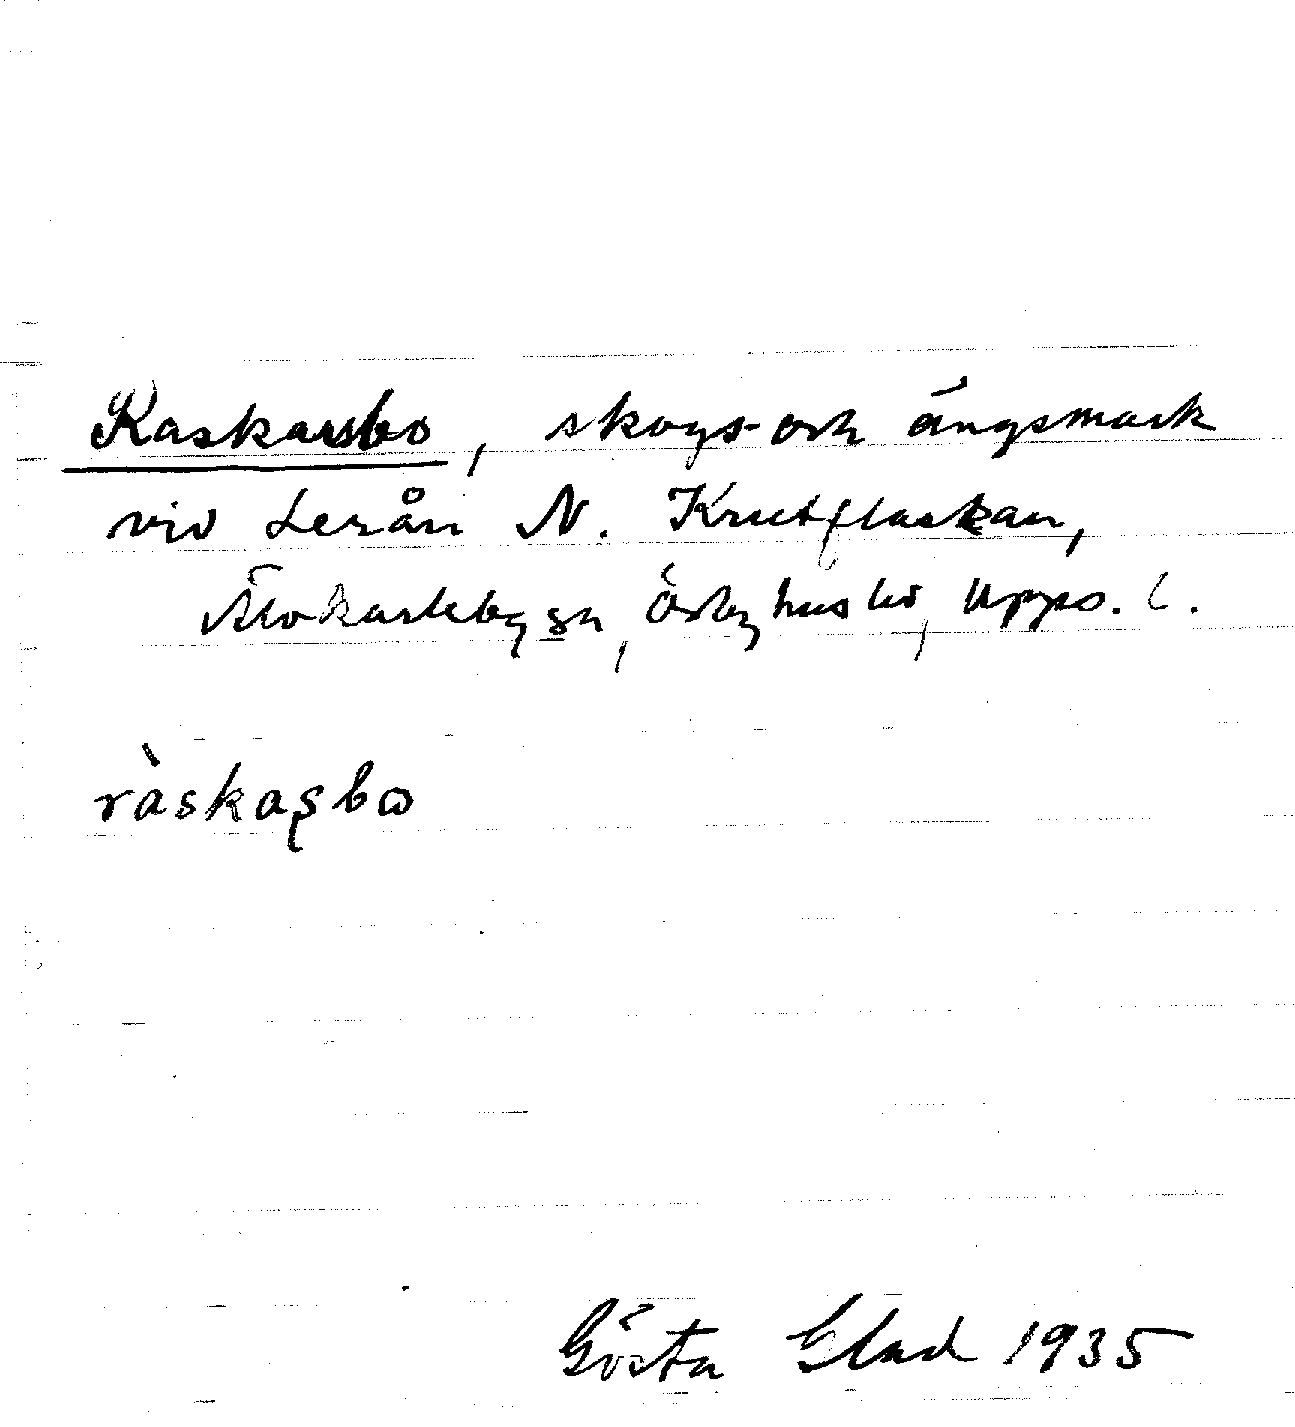 Raskarsbo, skogs- och ängsmark
vid Lerån N. Krutflaskan,
Älvkarleby sn, Örbyhus hd, Upps. l.
ràskaʂbɷ
Gösta Glad 1935